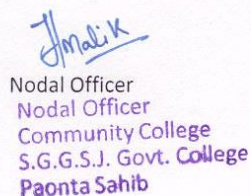 HMalik
Nodal Officer
Nodal Officer
Community College
S.G.G.S.J. Govt. College
Paonta Sahib